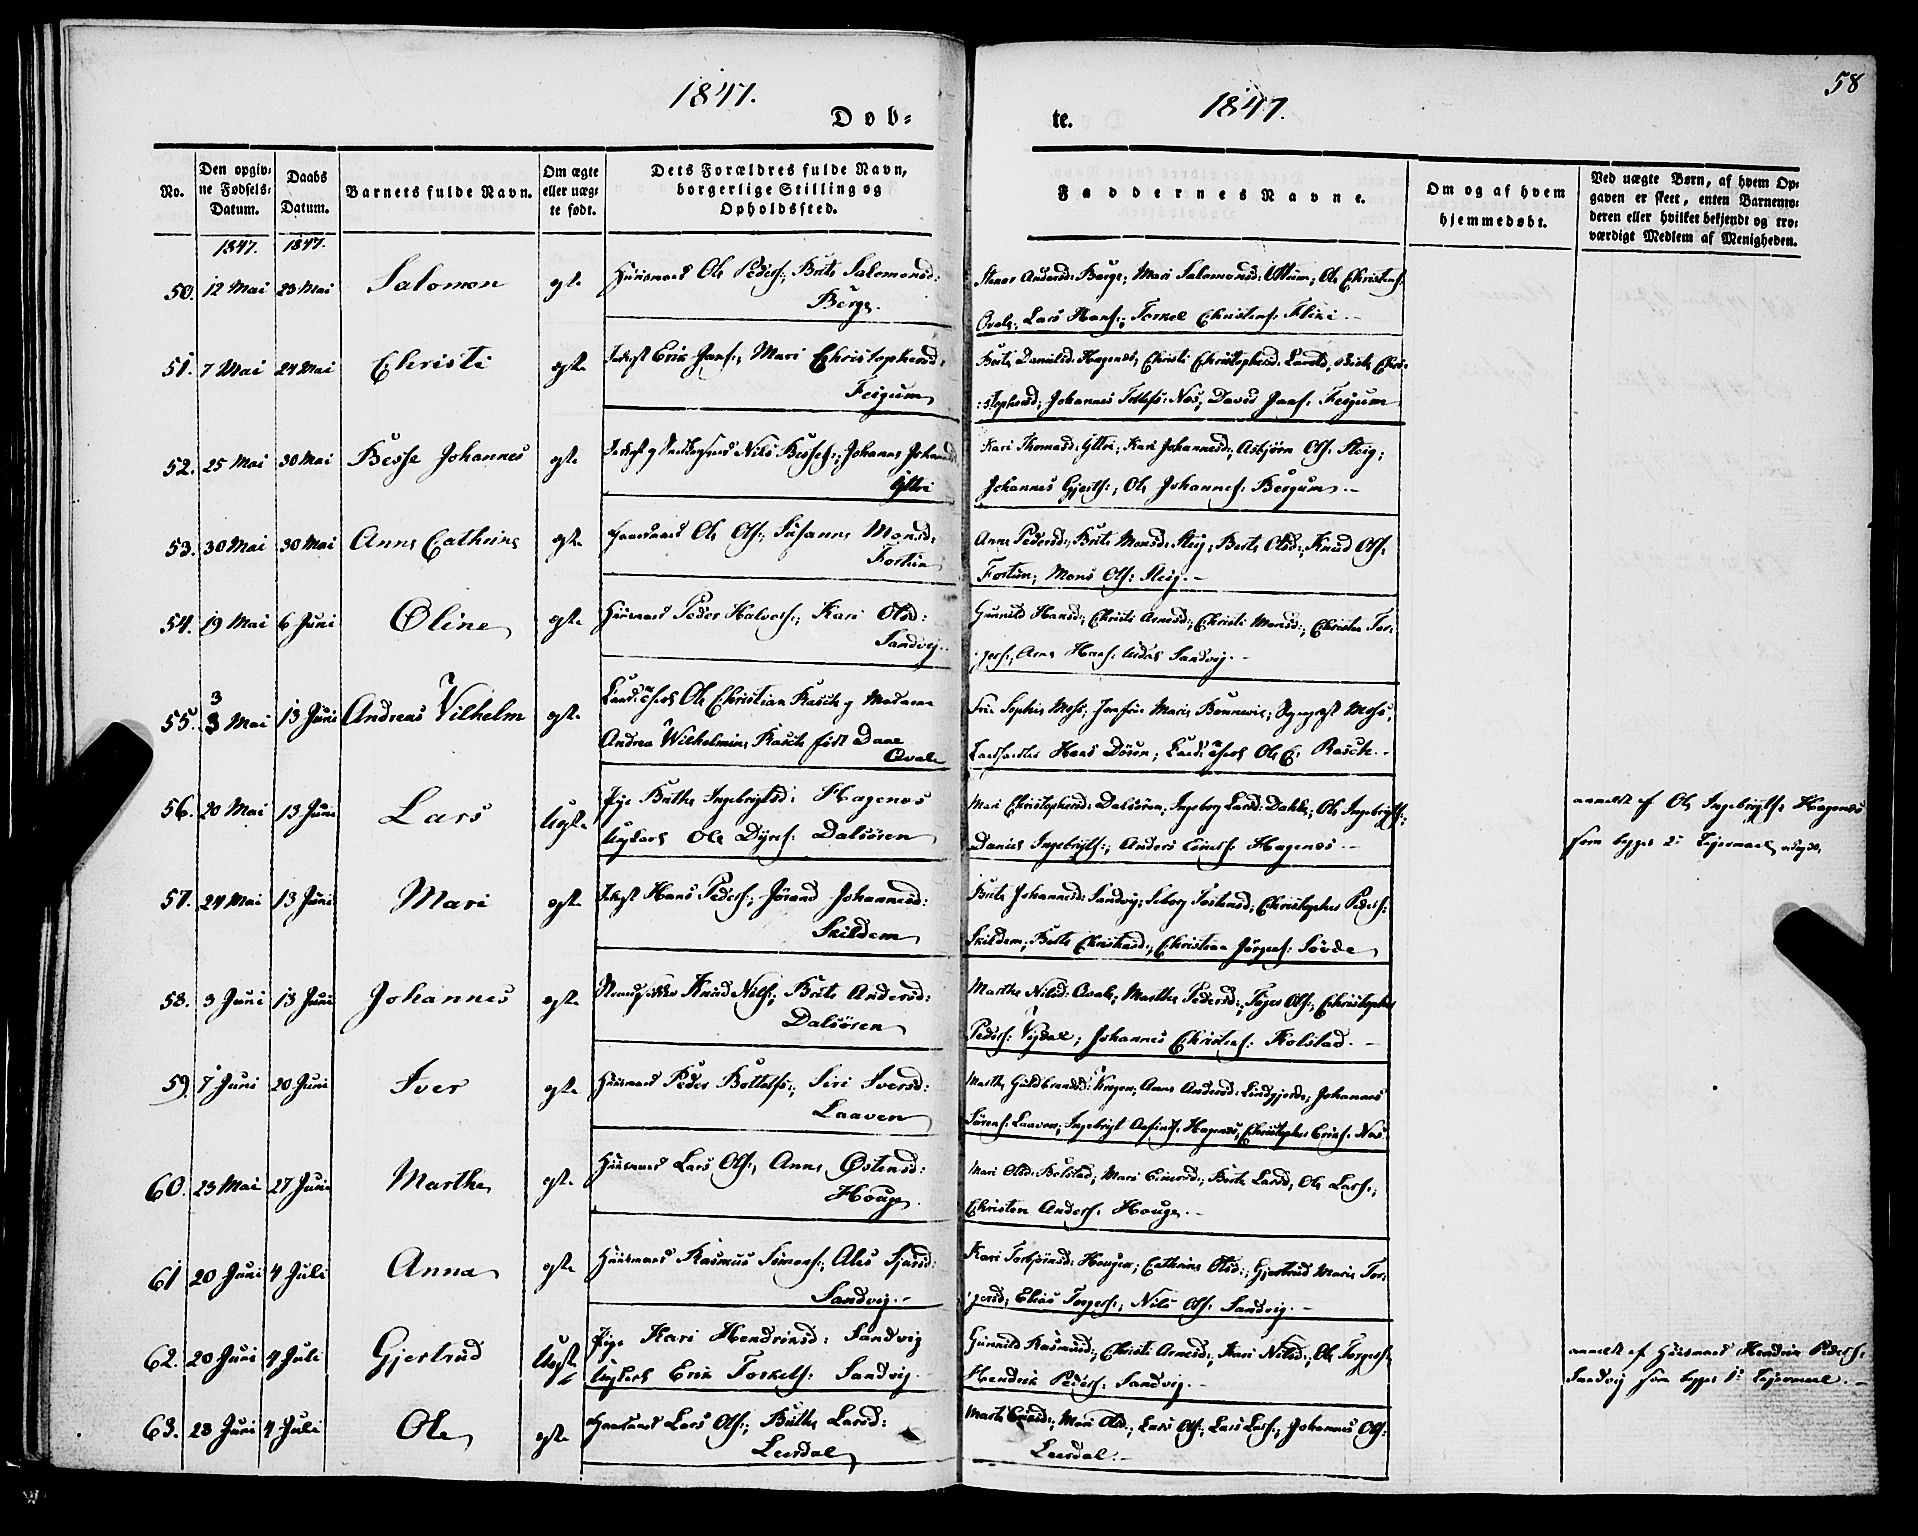 1847.
Døb-
te.
1847.
58
No.
Den opgiv-
ne Fødsels-
Datum.
Daabs
Datum.
Barnets fulde Navn.
Om ægte
eller uæg-
te født.
Dets Forældres fulde Navn,
borgerlige Stilling og
Opholdssted.
Faddernes Navne.
Om og af hvem
hjemmedøbt.
Ved uægte Børn, af hvem Op-
gaven er skeet, enten Barnemo-
deren eller hvilket bekjendt og tro-
værdigt Medlem af Menigheden.
1847. 1847.
50. 12 Mai 23 Mai Salomon egte Huusmand Ole Peders:, Brite Salomonsd:
Berge.
Andersd: Berge; Mari Salomonsd: Ottum; Ole Christens:
Qvale, Lars Hans:, Torkel Christens:
51. 7 Mai 24 Mai Christi egte Inderst Erik Jans:, Mari Christophersd:
Feigum
Brite Danielsd: Hagenæs, Christi Christophersd: Brite Chri-
stophersd; Johannes Næs, David Jans: Feigum
52. 25 Mai 30 Mai Besse Johannes egte Nils Besses:, Johanne Johannesd
Yttri
Kari Thomasd: Yttri; Kari Johannesd:, Asbjørn Ols: Steig;
Johannes Gjerts:, Ole Johannes: Bergum.-
53. 30 Mai 30 Mai Anne Cathrine egte Gaardmand Ole Ols:, Susanne Monsd:
Fortun
Anne Pedersd:, Brite Monsd: Steig, Berte Olsd:, Knud Ols:
Fortun; Mons Ols: Steig.-
54. 19 Mai 6 Juni Oline egte Huusmand Peder Halvors:, Kari Olsd:
Sandvig.
Gunnild Hansd:, Christi Arnesd:, Christi Monsd:, Christen Tor-
gers:, Arne Hans: Sandvig.-
55. 3 Mai 13 Juni Andreas Vilhelm egte Ole Christian Rasch og Madame
Andrea Wilhelmine Rasch født Daae
Qvale
Sophie Moss; Jomfrue Marie Bonnevie; Moss,
Hans Døsen; Ole C. Rasch.-
56. 20 Mai 13 Juni Lars Uegte Pige Brithe Ingebrigtsd: Hagenæs
Ungkarl Ole Dalsøren
Mari Christophersd: Dalsøren, Ingeborg Larsd: Dahle, Ole Ingebrigts:,
Daniel Ingebrigts:, Anders Hagenæs.-
anmeldt af Ole Ingebrigts: Hagenæs
som begges 2: Leiermaal
57. 24 Mai 13 Juni Mari egte Inderst Hans Peders:, Jørand Johannesd:
Skildem
Brite Johannesd: Sandvig; Christopher Peders:
Skildem, Christian Jørgens: Sørde
58. 3 Juni 13 Juni Johannes egte Knud Nils:, Brite Andersd:
Dalsøren
Marthe Nilsd: Qvale, Marthe Pedersd:, Ols:, Christopher
Peders: Vigdal; Johannes Christens: Kolstad.-
59. 7 Juni 20 Juni Iver egte Huusmand Peder Bottolfs:, Siri Iversd:
Laaven
Marthe Guldbrandsd: Kroken, Anne Andersd: Lindgjerde, Johannes
Sørens: Laaven, Ingebrigt Hagenæs, Christopher Eriks: Næs.
60. 23 Mai 27 Juni Marthe egte Huusmand Lars Ols:, Anne Østensd:
Houge.
Mari Olsd: Bolstad, Mari Brite Larsd, Ole Lars:,
Christen Anders: Houge.-
61 20 Juni 4 Juli Anna egte Huusmand Rasmus Simons:, Ales
Sandvig.-
Kari Torbjørnsd: Hougen; Cathrine Olsd:, Gjertrud Marie Tor-
gersd, Elias Torgers:, Nils Ols: Sandvig.-
62. 20 Juni 4 Juli Gjertrud Uegte Pige Kari Hendriksd: Sandvig
Ungkarl Erik Torkels: Sandvig
Gunnild Rasmusd:, Christi Arnesd:, Kari Nilsd:, Ole Torgers:
Hendrik Peders: Sandvig.-
anmeldt af Huusmand Hendrik Peders:
Sandvig som begges 1: Leiermaal.-
63. 28 Juni 4 Juli Ole egte Gaardmand Lars Ols:, Brithe Larsd:
Leirdal
Marte Mari Olsd:, Lars Ols:, Lars Lars:, Johannes Ols:
Leirdal.-